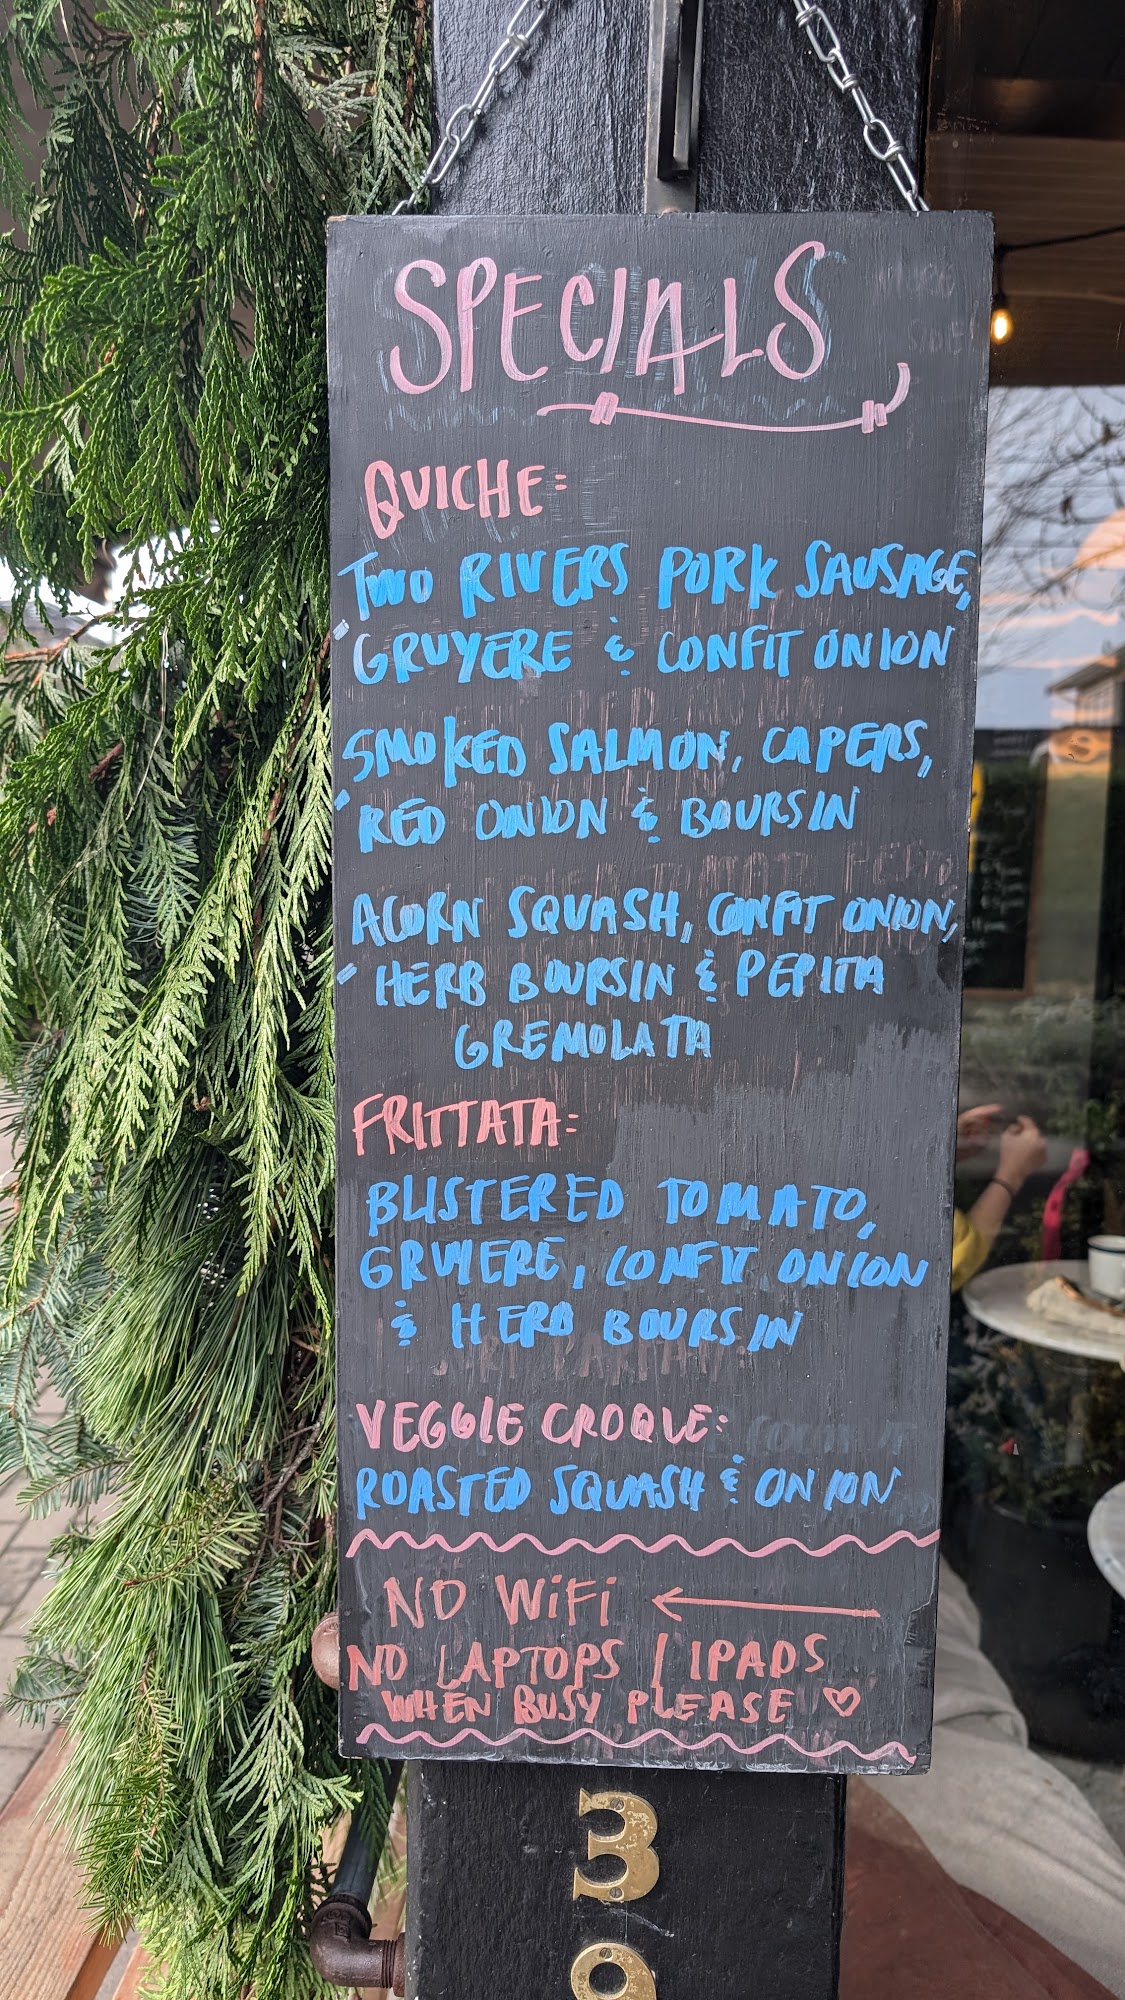 SPECIALS
QUICHE:
TWO RIVERS PORK SAUSAGE,
GRUYERE & CONFIT ONION
SMOKED SALMON, CAPERS,
RED ONION & BOURSIN
ACORN SQUASH, CONFIT ONION,
HERB BOURSIN & PEPITA
GREMOLATA
FRITTATA:
BLISTERED TOMATO,
GRUYERE, CONFIT ONION
& HERB BOURSIN
VEGGIE CROQUE:
ROASTED SQUASH & ONION
NO WiFi ←
NO LAPTOPS / IPADS
WHEN BUSY PLEASE ♡
3
9